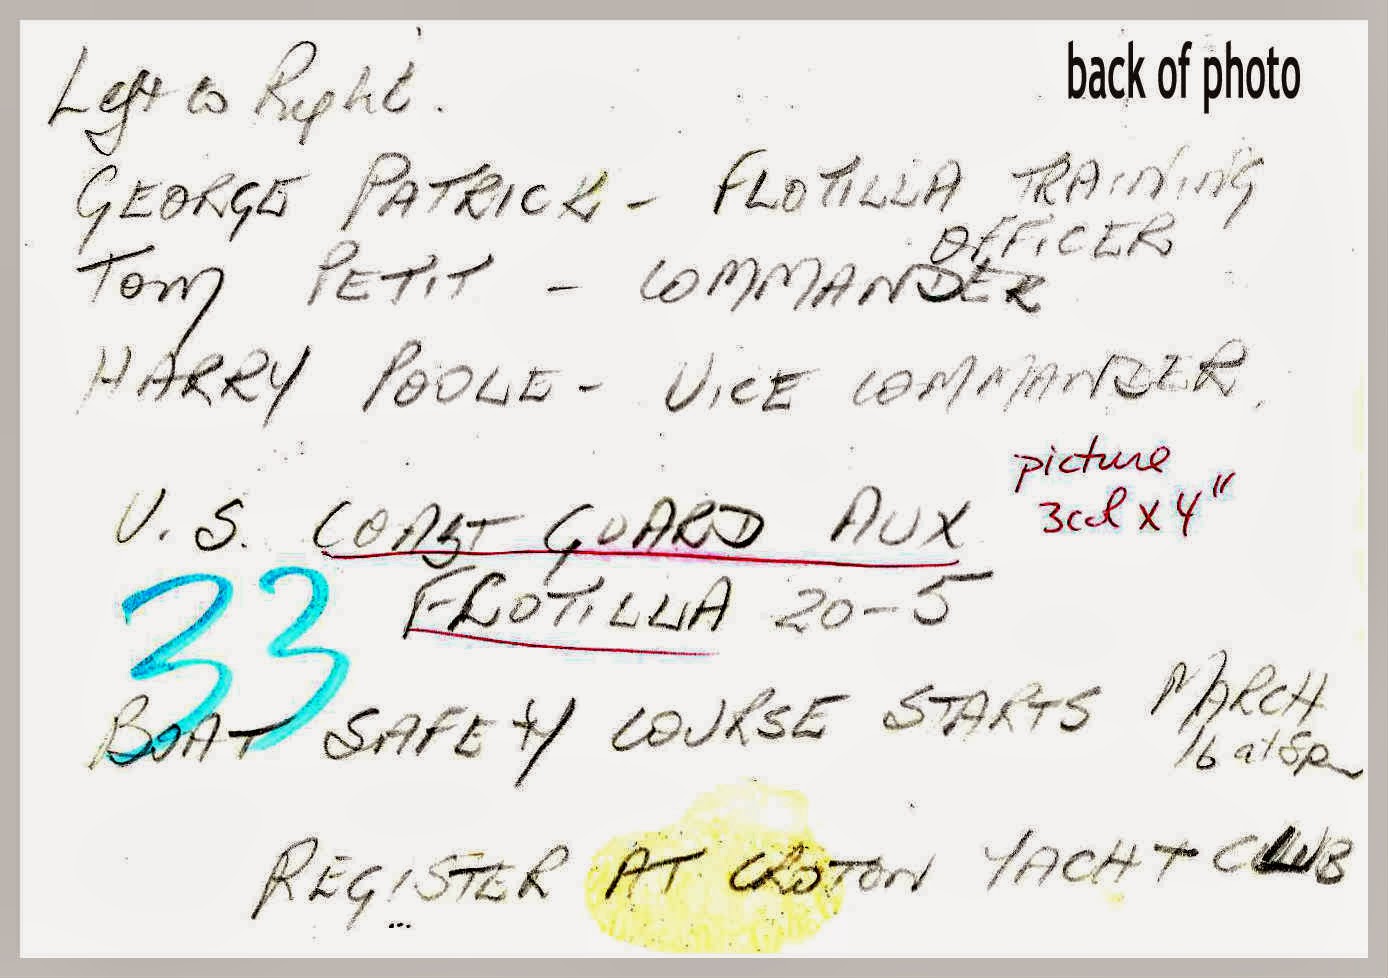 back of photo
Left to Right.
GEORGE PATRICK - FLOTILLA TRAINING
OFFICER
TOM PETIT - COMMANDER
HARRY POOLE - VICE COMMANDER.
picture
3col x 4"
U.S. COAST GUARD AUX
FLOTILLA 20-5
33
BOAT SAFETY COURSE STARTS MARCH
16 at 8pm
REGISTER AT CROTON YACHT CLUB